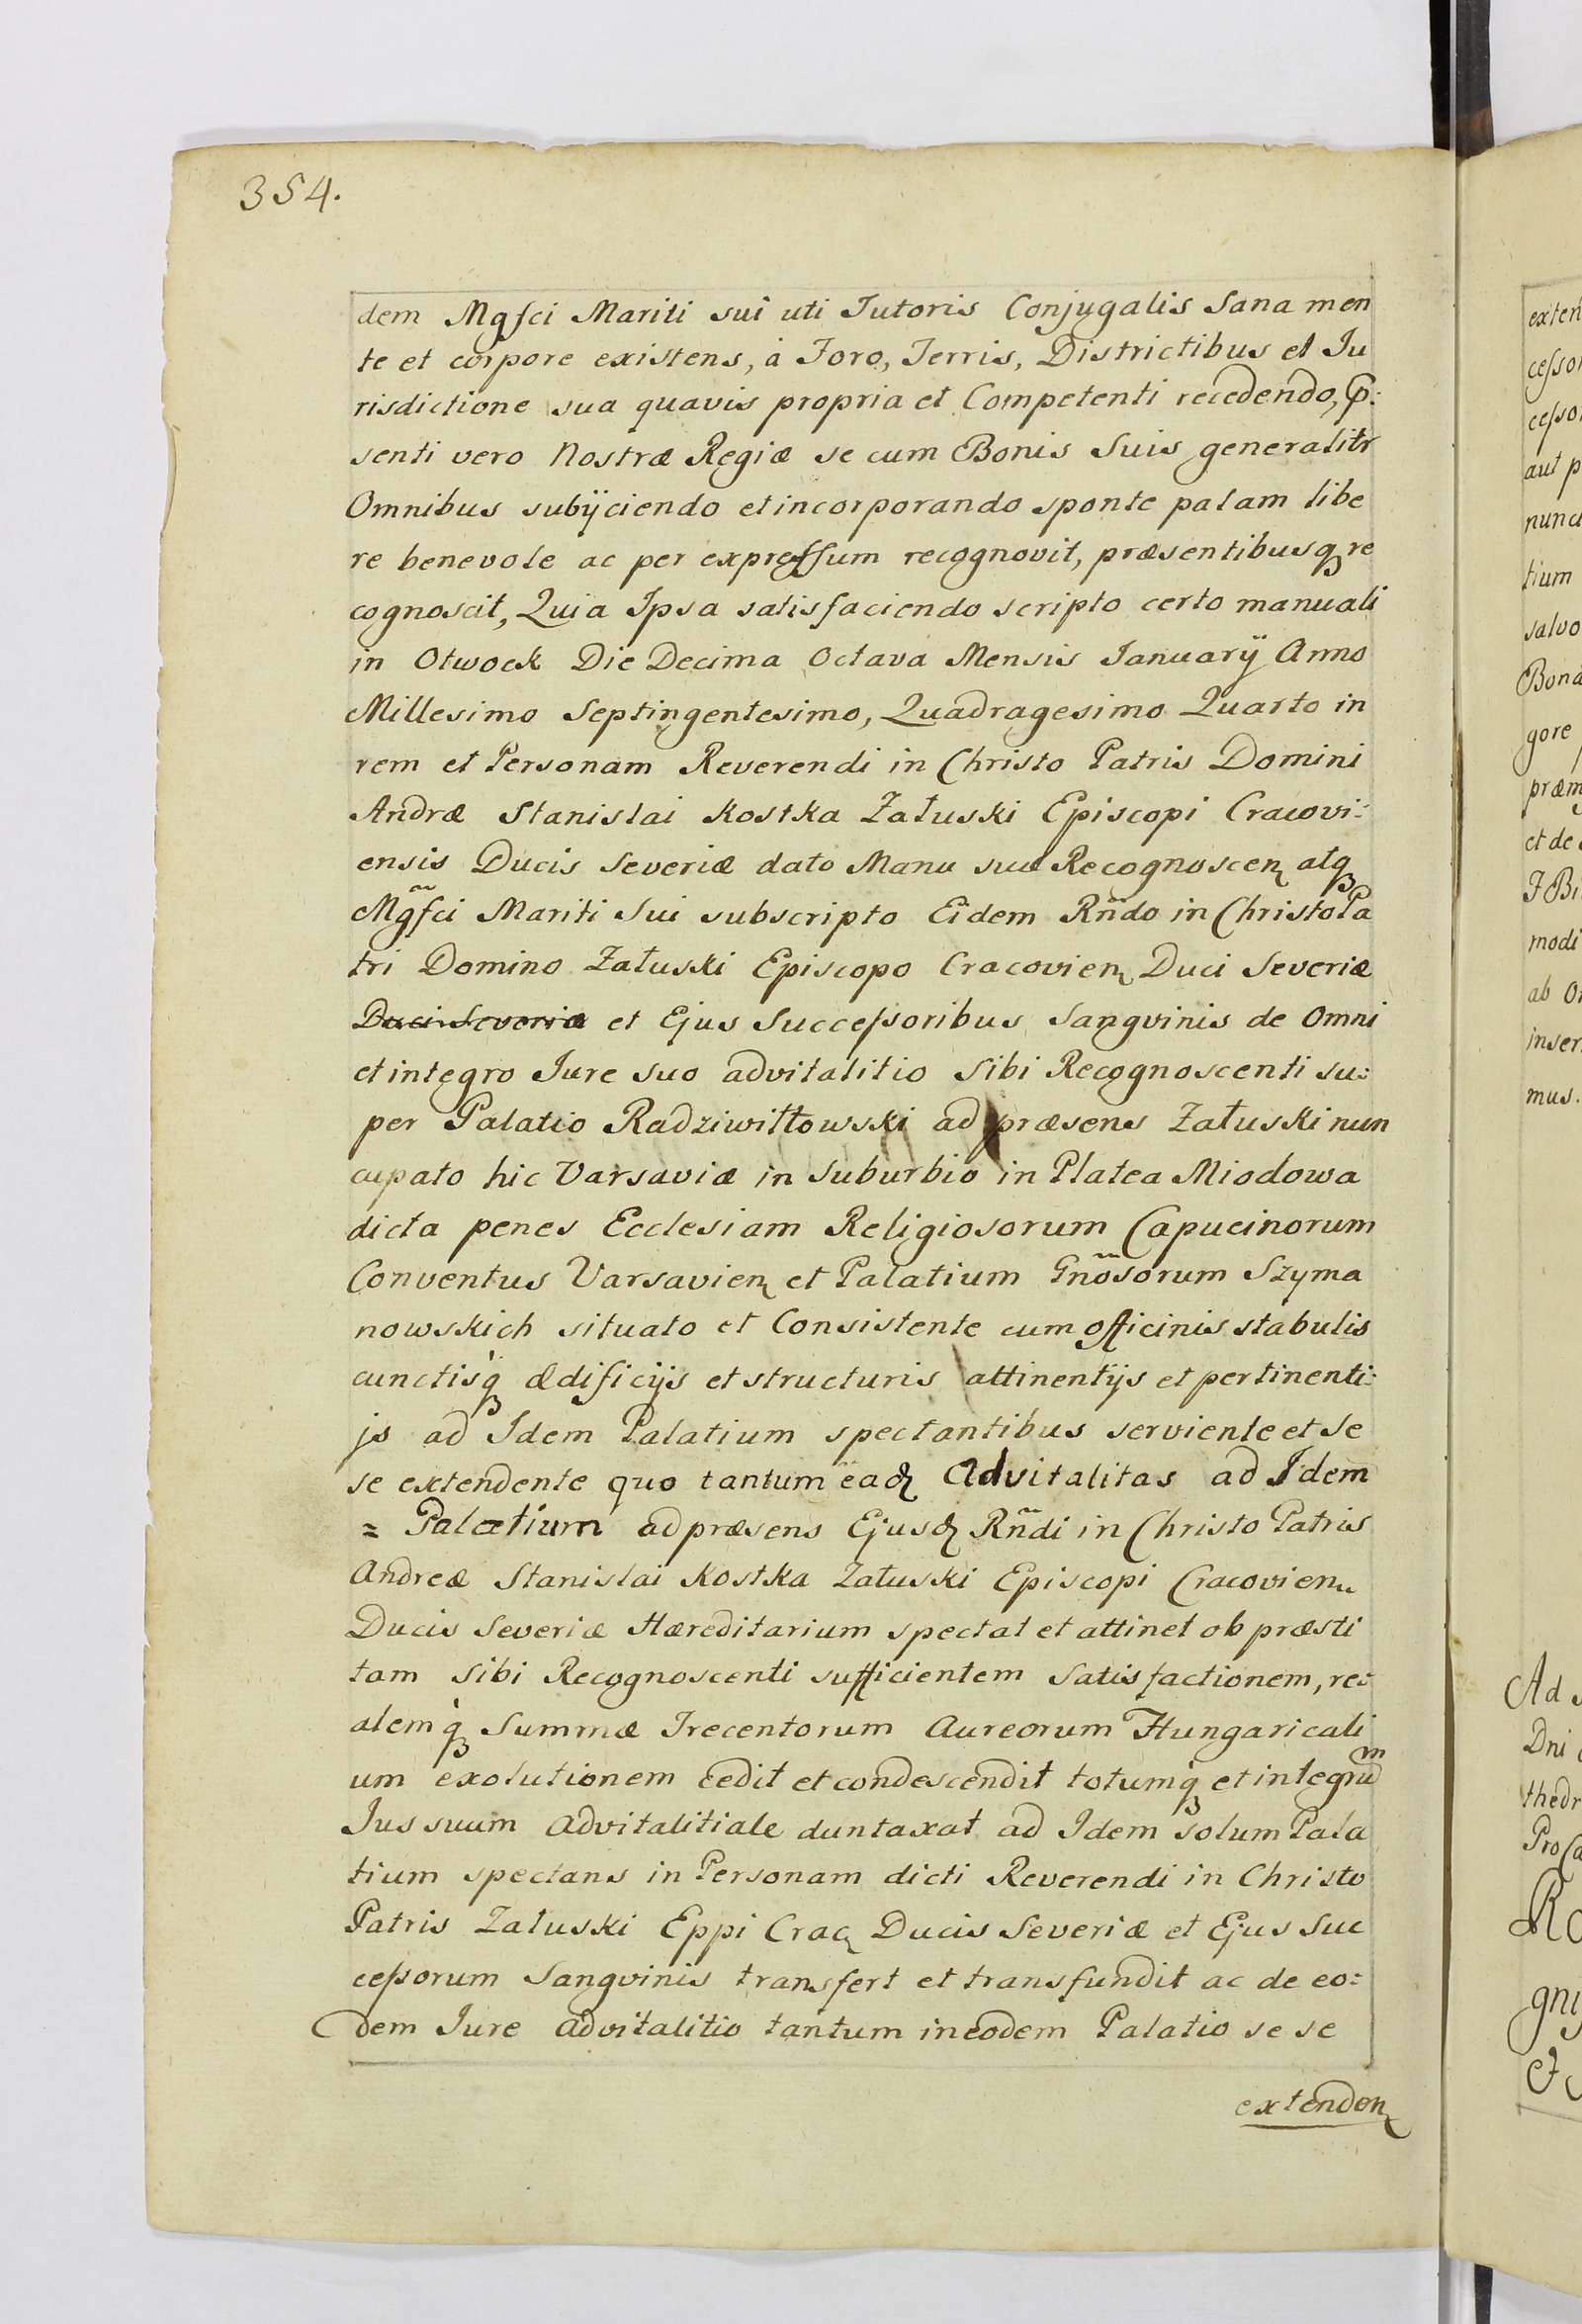 354.
dem Mgfci Mariti sui uti Tutoris Conjugalis Sana men
te et corpore existens, à Foro, Terris, Districtibus et Ju
risdictione sua quavis propria et Competenti recedendo, p:
senti vero Nostræ Regiæ se cum Bonis Suis generalitr
Omnibus subijciendo et incorporando sponte palam libe
re benevole ac per expressum recognovit, præsentibusq re
cognoscit, Quia Ipsa satisfaciendo scripto certo manuali
in Otwock Die Decima Octava Mensis Januarij Anno
Millesimo Septingentesimo, Quadragesimo Quarto in
rem et Personam Reverendi in Christo Patris Domini
Andræ Stanislai Kostka Załuski Episcopi Cracovi:
ensis Ducis Severiæ dato Manu sua Recognoscen atq
Mgfci Mariti Sui subscripto Eidem Rndo in Christo Pa
tri Domino Załuski Episcopo Cracovien Duci Severiæ
Duci Severiæ et Ejus Successoribus Sangvinis de Omni
et integro Jure suo advitalitio Sibi Recognoscenti su:
per Palatio Radziwiłłowski ad præsens Załuski nun
cupato hic Varsaviæ in Suburbio in Platea Miodowa
dicta penes Ecclesiam Religiosorum Capucinorum
Conventus Varsavien et Palatium Gnosorum Szyma
nowskich situato et Consistente cum officinis stabulis
cunctisq ædificijs et structuris attinentijs et pertinenti:
js ad Idem Palatium spectantibus serviente et Se
se extendente quo tantum ead Advitalitas ad Idem
= Palatium ad præsens Ejusd Rndi in Christo Patris
Andreæ Stanislai Kostka Załuski Episcopi Cracovien
Ducis Severiæ Hæreditarium spectat et attinet ob præsti
tam Sibi Recognoscenti sufficientem Satisfactionem, re:
alemq Summæ Trecentorum Aureorum Hungaricali
um exolutionem cedit et condescendit totumq et integrum
Jus suum Advitalitiale duntaxat ad Idem solum Pala
tium spectans in Personam dicti Reverendi in Christo
Patris Załuski Eppi Crac Ducis Severiæ et Ejus Suc
cessorum Sangvinis transfert et transfundit ac de eo:
dem Jure advitalitio tantum in eodem Palatio se se
extenden
exten
cessor
cesso
aut p
nunc
tium
salvo
Bona
gore
præm
et de
modi
ab O
inser
mus.
Ad
Dni
thedr
Pro
gni
Et